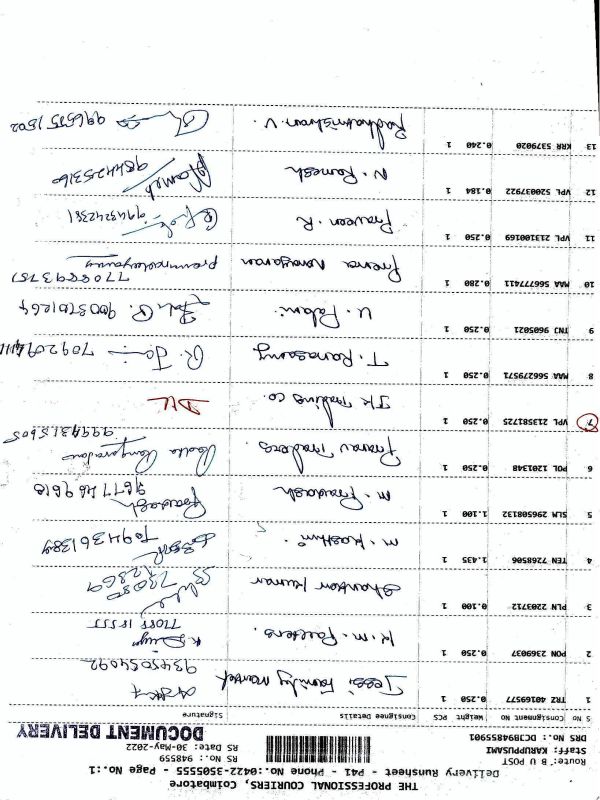 THE PROFESSIONAL COURIERS, Coimbatore
Delivery Runsheet - P41 - Phone No.:0422-3505555 - Page No.:1
Route: U B POST
Staff: KARUPUSAMI
DRS No.: DCJB9485901
RS No.: 948559
RS Date: 30-May-2022
DOCUMENT DELIVERY
S No Consignment NO Weight PCS Consignee Details Signature
1 TRZ 40169577 0.250 1 Jessi Family Market 9345054092
2 PON 2369037 0.250 1 K.M. Palters.
3 PLN 2203712 0.100 1 Shankar Kumar
4 TEN 7268506 1.435 1 M. Kasthuri 7094361384
5 SLM 296508132 1.100 1 M. Prakash Prakash 9677469618
6 POL 1201348 0.250 1 Pranav Traders.
7 VPL 213581725 0.250 1 JK Trading co. DLL
8 MAA 566279571 0.250 1 T. Ranasamy R. Jai
9 TNJ 9605021 0.250 1 U. Palani 9003701264
10 MAA 566777411 0.280 1 Prema Narayanan 7708893751
11 VPL 213100169 0.250 1 Praveen. R 9943242381
12 VPL 520037922 0.184 1 N. Ramesh Ramesh 9844425316
13 KRR 5379020 0.240 1 Radhakrishnan. V. 9965751502